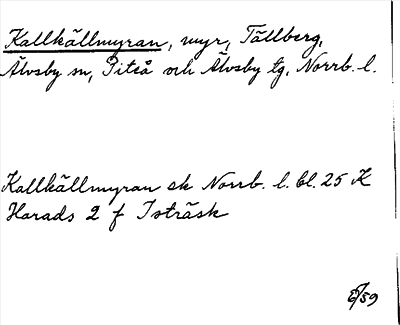 Kallkällmyran, myr, Tällberg,
Älvsby sn, Piteå och Älvsby tg, Norrb. l.
Kallkällmyran sk Norrb. l. bl. 25 K
Harads 2 f Isträsk
/59